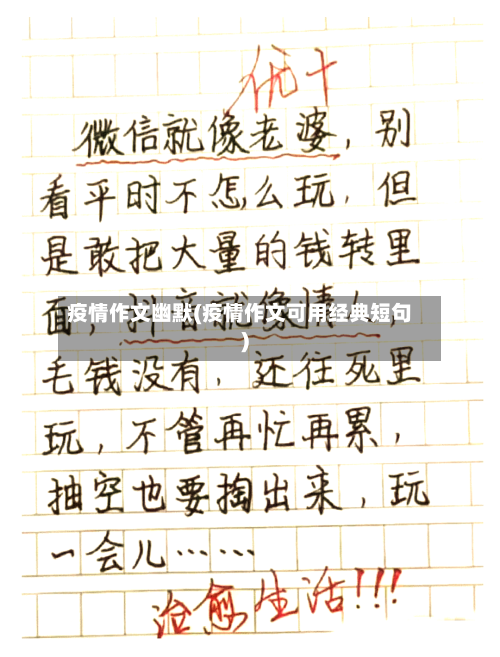 优十
微信就像老婆，别
看平时不怎么玩，但
是敢把大量的钱转里
面，抖音就像情
疫情作文幽默(疫情作文可用经典短句
)
毛钱没有，还往死里
玩，不管再忙再累，
抽空也要掏出来，玩
一会儿……
治愈生活!!!